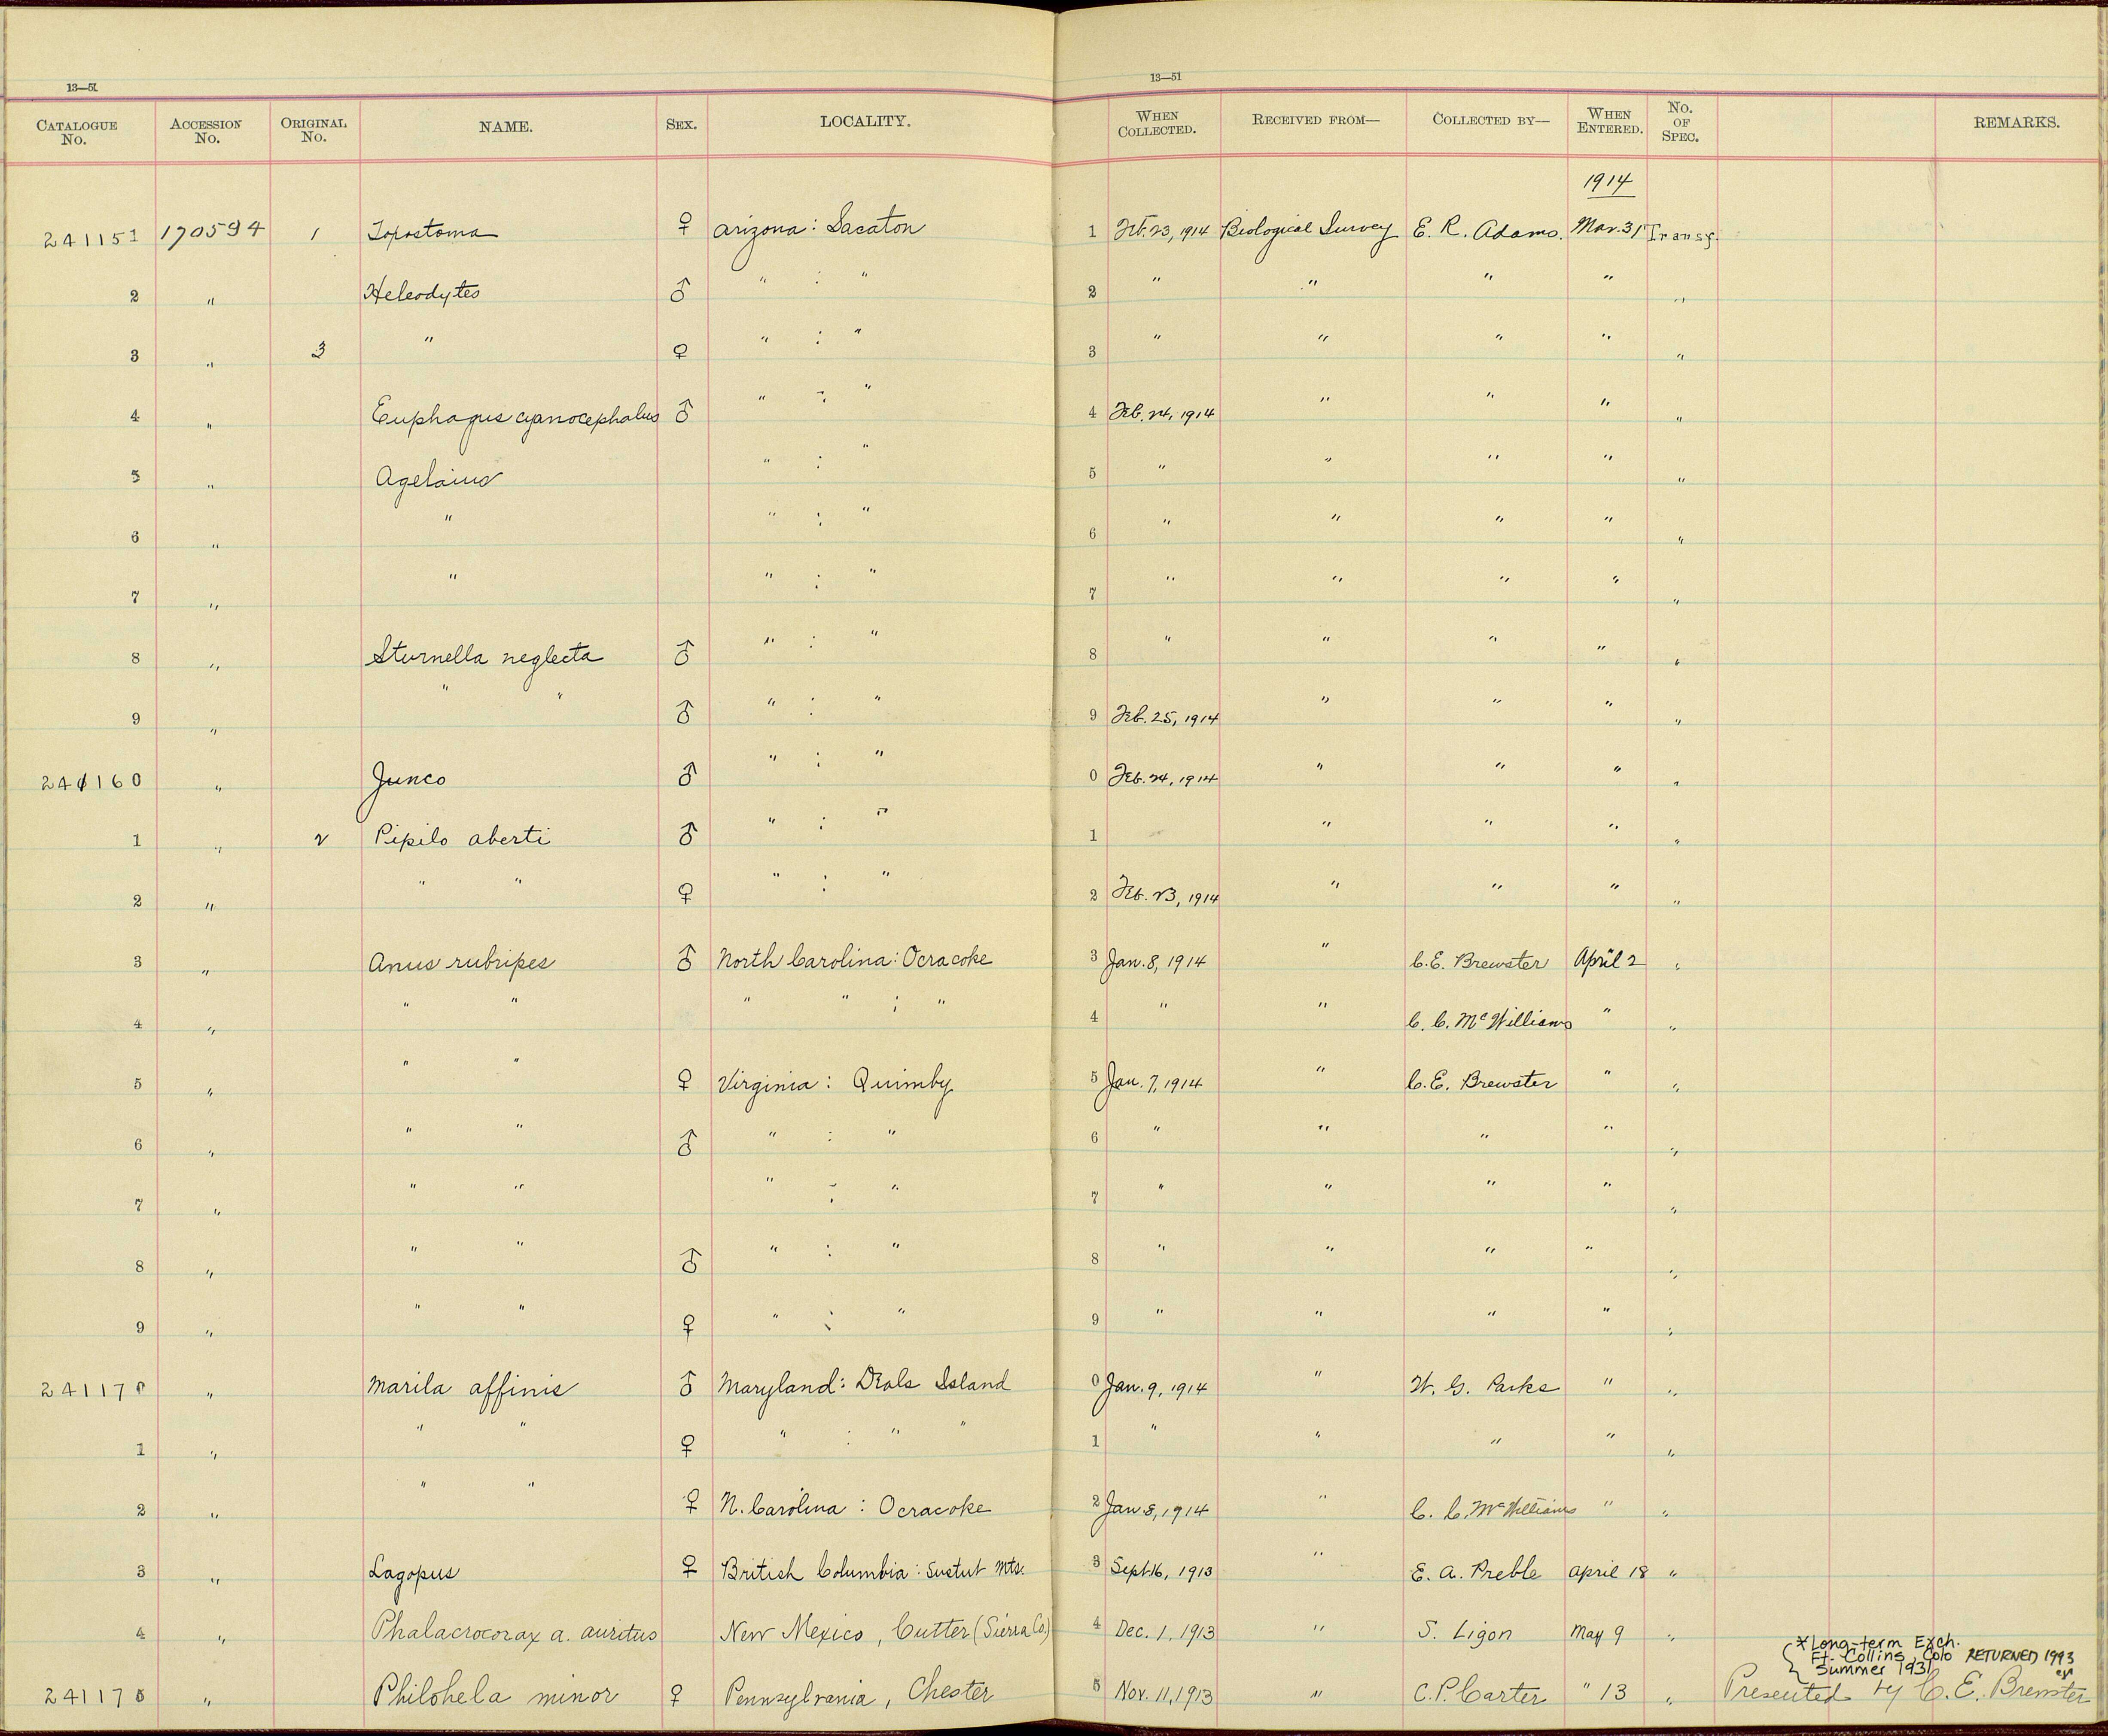 13—51 13—51
CATALOGUE No. ACCESSION No. ORIGINAL No. NAME. SEX. LOCALITY. WHEN COLLECTED. RECEIVED FROM— COLLECTED BY— WHEN ENTERED. No. OF SPEC. REMARKS.
1914
241151 170594 1 Toxostoma ♀ Arizona: Sacaton 1 Feb. 23, 1914 Biological Survey E. R. Adams. Mar. 31 Transf.
2 " Heleodytes ♂ " : " 2 " " " " "
3 " 3 " ♀ " : " 3 " " " " "
4 " Euphagus cyanocephalus ♂ " : " 4 Feb. 24, 1914 " " " "
5 " Agelaius " : " 5 " " " " "
6 " " " : " 6 " " " " "
7 " " " : " 7 " " " " "
8 " Sturnella neglecta ♂ " : " 8 " " " " "
9 " " " ♂ " : " 9 Feb. 25, 1914 " " " "
241160 " Junco ♂ " : " 0 Feb. 24, 1914 " " " "
1 " 2 Pipilo aberti ♂ " : " 1 " " " "
2 " " " ♀ " : " 2 Feb. 23, 1914 " " " "
3 " Anus rubripes ♂ North Carolina: Ocracoke 3 Jan. 8, 1914 " C. E. Brewster April 2 "
4 " " " " " : " 4 " " C. C. McWilliams " "
5 " " " ♀ Virginia: Quimby 5 Jan. 7, 1914 " C. E. Brewster " "
6 " " " ♂ " : " 6 " " " " "
7 " " " " : " 7 " " " " "
8 " " " ♂ " : " 8 " " " " "
9 " " " ♀ " : " 9 " " " " "
241170 " Marila affinis ♂ Maryland: Deals Island 0 Jan. 9, 1914 " W. G. Parks " "
1 " " " ♀ " : " " 1 " " " " "
2 " " " ♀ N. Carolina: Ocracoke 2 Jan. 8, 1914 " C. C. McWilliams " "
3 " Lagopus ♀ British Columbia: Sustut Mts. 3 Sept 16, 1913 " E. A. Preble April 18 "
4 " Phalacrocorax a. auritus New Mexico, Cutter (Sierra Co.) 4 Dec. 1, 1913 " S. Ligon May 9 "
*Long-term Exch.
Ft. Collins, Colo RETURNED 1993
Summer 1931
241175 " Philohela minor ♀ Pennsylvania, Chester 5 Nov. 11, 1913 " C. P. Carter " 13 " Presented by C. E. Brewster